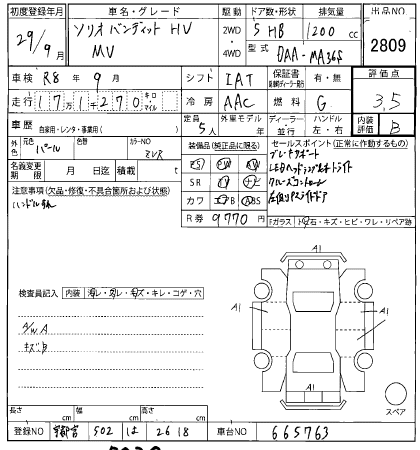 初度登録年月 車名・グレード 駆動 ドア数・形状 排気量 出品NO
29/9月 ソリオバンディット HV MV 2WD・4WD 5 HB 1200cc 2809
型式 DAA-MA36S
車検 R8年 9月 シフト IAT 保証書 有・無 燃料 G 評価点 3.5
走行 171270 キロ マイル 冷房 AAC
車歴 自家用・レンタ・事業用( ) 定員 5人 外車モデル 年 ディーラー・並行 ハンドル 左・右 内装評価 B
外色 元色 パール 色替 カラーNO ZVR
名義変更期限 月 日迄 積載 t
装備品(純正品に限る) セールスポイント(正常に作動するもの)
PS PW ブレーキサポート
SR ナビ LEDヘッドライト
カワ ABS クルーズコントロール
R券 9770円 左側PスライドドA
注意事項(欠品・修復・不具合箇所および状態)
ハンドル
Fガラス 飛石・キズ・ヒビ・ワレ・リペア跡
検査員記入 内装 汚レ・スレ・キズ・キレ・コゲ・穴
A/W A
キズ 有
A1
A1
A1
A1
スペア
長さ cm 幅 cm 高さ cm
登録NO 宇都宮 502 は 2618 車台NO 665763